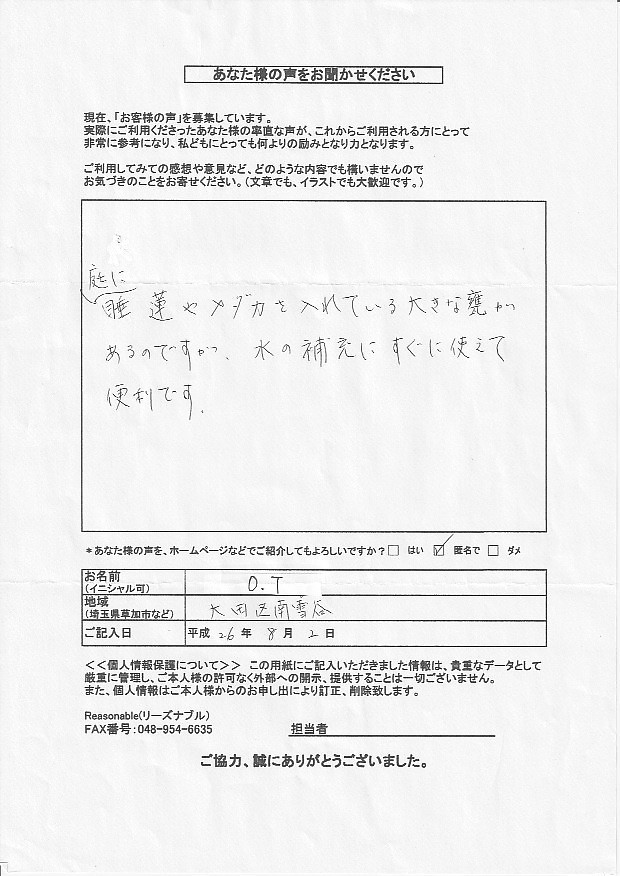 あなた様の声をお聞かせください
現在、「お客様の声」を募集しています。
実際にご利用くださったあなた様の率直な声が、これからご利用される方にとって
非常に参考になり、私どもにとっても何よりの励みとなり力となります。
ご利用してみての感想や意見など、どのような内容でも構いませんので
お気づきのことをお寄せください。(文章でも、イラストでも大歓迎です。)
庭に
睡蓮やメダカを入れている大きな甕が
あるのですが、水の補充にすぐに使えて
便利です。
*あなた様の声を、ホームページなどでご紹介してもよろしいですか?□ はい ☑ 匿名で □ ダメ
お名前
(イニシャル可)
O.T
地域
(埼玉県草加市など)
大田区南雪谷
ご記入日
平成 26 年 8 月 2 日
<<個人情報保護について>> この用紙にご記入いただきました情報は、貴重なデータとして
厳重に管理し、ご本人様の許可なく外部への開示、提供することは一切ございません。
また、個人情報はご本人様からのお申し出により訂正、削除致します。
Reasonable(リーズナブル)
FAX番号:048-954-6635
担当者
ご協力、誠にありがとうございました。